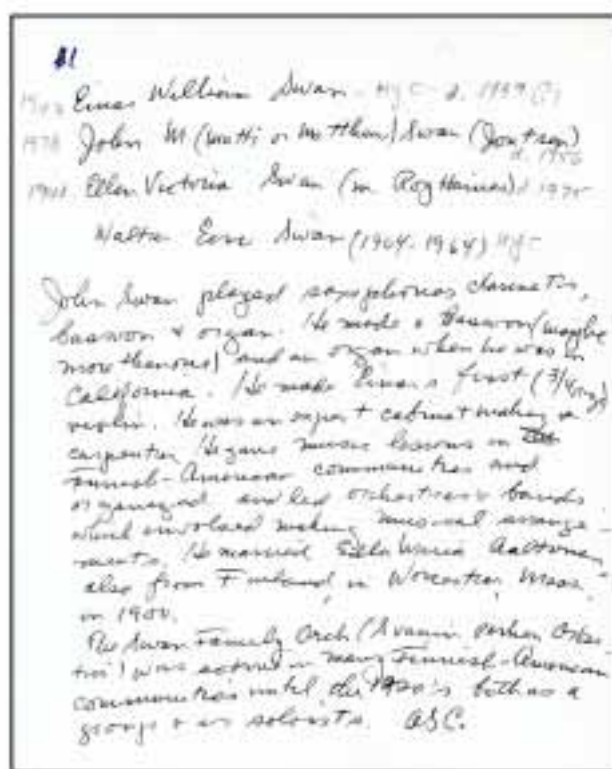 Einar William Swan - NYC - d.
John M (Matti or Matthew) Swan (Joutsen)
Ellen Victoria Swan (m Roy Haines)
Walter Eero Swan (1964-1964) NYC
John Swan played saxophones, clarinets,
bassoon & organ. He made a Bassoon (maybe
more than one) and an organ when he was in
California. He made Einar's first (3/4
violin. He was an expert cabinet making &
carpenter. He gave music lessons in
Finnish-American communities and
organized and led orchestras & bands
which involved making musical arrange-
ments. He married Maria Aaltonen
also from Finland, in Worcester, Mass.
in 1900.
The Swan Family Orch (
) was active in many Finnish-American
communities until the 1920's both as a
group & as soloists. ASC.